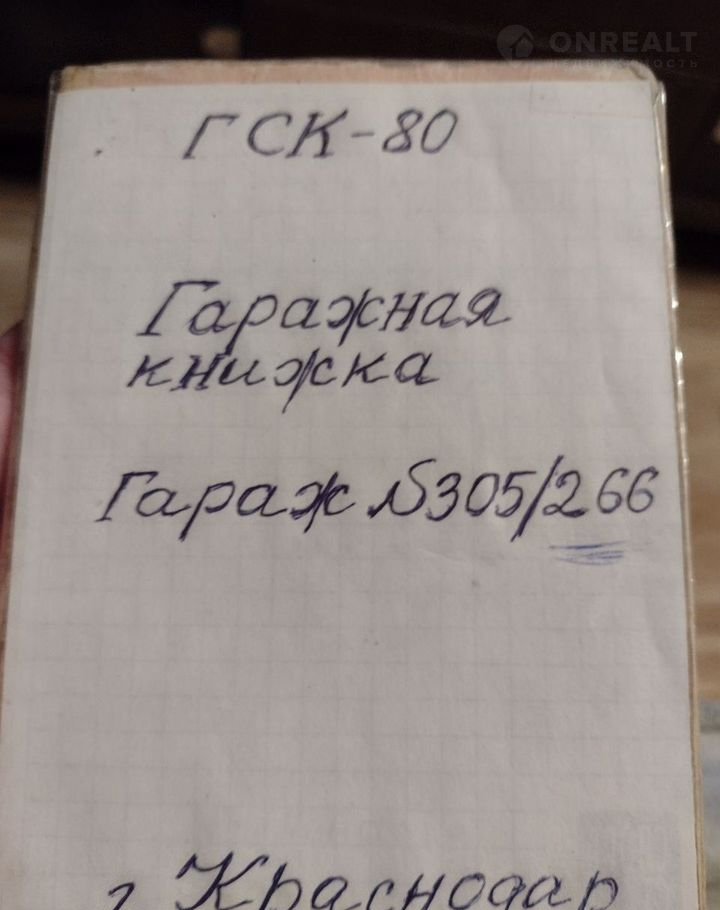 ONREALT
НЕДВИЖИМОСТЬ
ГСК-80
Гаражная
книжка
Гараж №305/266
г Краснодар